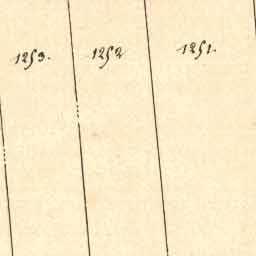 1253. 1252 1251.